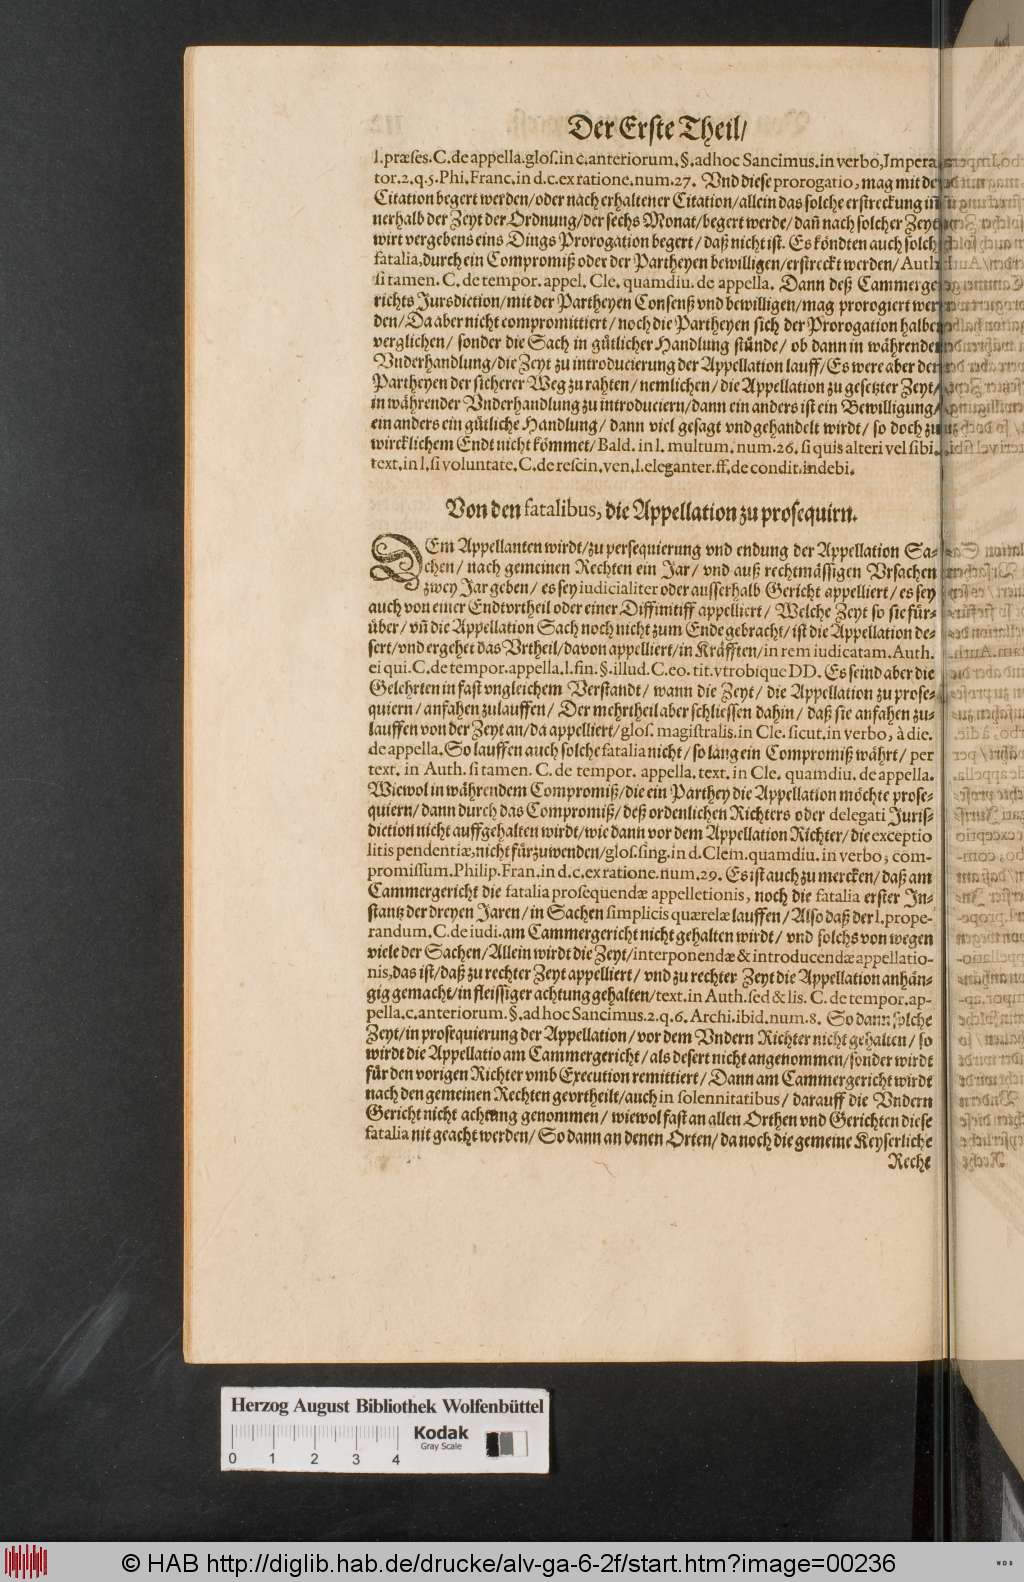 Der Erste Theil/
l.præses.C.de appella.glos.in c.anteriorum.§.ad hoc Sancimus.in verbo, Impera
tor.2.q.5.Phi.Franc.in d.c.ex ratione.num.27. Vnd diese prorogatio, mag mit de
Citation begert werden/oder nach erhaltener Citation/allein das solche erstreckung iñ
nerhalb der Zeyt der Ordnung/der sechs Monat/begert werde/dañ nach solcher Zeyt
wirt vergebens eins Dings Prorogation begert/daß nicht ist. Es köndten auch solch
fatalia, durch ein Compromiß oder der Partheyen bewilligen/erstreckt werden/Auth.
si tamen. C. de tempor. appel. Cle. quamdiu. de appella. Dann deß Cammerge
richts Jursdiction/mit der Partheyen Consenß vnd bewilligen/mag prorogiert wer
den/Da aber nicht compromittiert/noch die Partheyen sich der Prorogation halbe
verglichen/ sonder die Sach in gütlicher Handlung stünde/ ob dann in währende
Vnderhandlung/die Zeyt zu introducierung der Appellation lauff/Es were aber der
Partheyen der sicherer Weg zu rahten/nemlichen/die Appellation zu gesetzter Zeyt/
in währender Vnderhandlung zu introduciern/dann ein anders ist ein Bewilligung/
ein anders ein gütliche Handlung/ dann viel gesagt vnd gehandelt wirdt/ so doch zu
wircklichem Endt nicht kömmet/Bald. in l. multum. num.26. si quis alteri vel sibi.
text.in l.si voluntate.C.de rescin.ven.l.eleganter.ff.de condit.indebi.
Von den fatalibus, die Appellation zu prosequirn.
DEm Appellanten wirdt/zu persequierung vnd endung der Appellation Sa-
chen/ nach gemeinen Rechten ein Jar/ vnd auß rechtmässigen Vrsachen
zwey Jar geben/ es sey iudicialiter oder ausserhalb Gericht appelliert/es sey
auch von einer Endtvrtheil oder einer Diffinitiff appelliert/ Welche Zeyt so sie für-
über/ vñ die Appellation Sach noch nicht zum Ende gebracht/ist die Appellation de-
sert/vnd ergehet das Vrtheil/davon appelliert/in Kräfften/in rem iudicatam. Auth.
ei qui. C. de tempor.appella.l.fin.§.illud. C.eo. tit.vtrobique DD. Es seind aber die
Gelehrten in fast vngleichem Verstandt/ wann die Zeyt/ die Appellation zu prose-
quiern/anfahen zulauffen/ Der mehrtheil aber schliessen dahin/ daß sie anfahen zu-
lauffen von der Zeyt an/da appelliert/glos. magistralis.in Cle. sicut.in verbo, à die.
de appella. So lauffen auch solche fatalia nicht/so lang ein Compromiß währt/ per
text. in Auth. si tamen. C. de tempor. appella. text. in Cle. quamdiu. de appella.
Wiewol in währendem Compromiß/die ein Parthey die Appellation möchte prose-
quiern/dann durch das Compromiß/deß ordenlichen Richters oder delegati Juris-
diction nicht auffgehalten wirdt/wie dann vor dem Appellation Richter/die exceptio
litis pendentiæ, nicht fürzuwenden/glos.sing.in d.Clem.quamdiu.in verbo, com-
promissum.Philip.Fran.in d.c.ex ratione.num.29. Es ist auch zu mercken/daß am
Cammergericht die fatalia prosequendæ appelletionis, noch die fatalia erster In-
stantz der dreyen Jaren/in Sachen simplicis quærelæ lauffen/Also daß der l.prope-
randum.C.de iudi.am Cammergericht nicht gehalten wirdt/ vnd solchs von wegen
viele der Sachen/Allein wirdt die Zeyt/interponendæ & introducendæ appellatio-
nis, das ist/daß zu rechter Zeyt appelliert/ vnd zu rechter Zeyt die Appellation anhän-
gig gemacht/in fleissiger achtung gehalten/text.in Auth.sed & lis. C. de tempor.ap-
pella.c.anteriorum.§.ad hoc Sancimus.2.q.6. Archi.ibid.num.8. So dann solche
Zeyt/in prosequierung der Appellation/vor dem Vndern Richter nicht gehalten/ so
wirdt die Appellatio am Cammergericht/als desert nicht angenommen/sonder wirdt
für den vorigen Richter vmb Execution remittiert/Dann am Cammergericht wirdt
nach den gemeinen Rechten gevrtheilt/auch in solennitatibus/ darauff die Vndern
Gericht nicht achtung genommen/ wiewol fast an allen Orthen vnd Gerichten diese
fatalia nit geacht werden/So dann an denen Orten/da noch die gemeine Keyserliche
Recht
Herzog August Bibliothek Wolfenbüttel
Kodak
Gray Scale
0 1 2 3 4
© HAB http://diglib.hab.de/drucke/alv-ga-6-2f/start.htm?image=00236